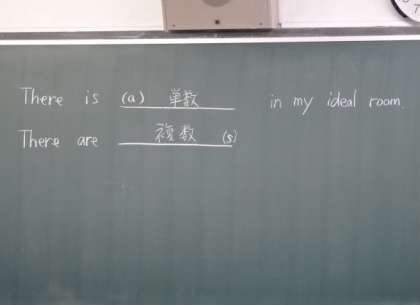 There is (a) 単数 in my ideal room.
There are 複数 (s)